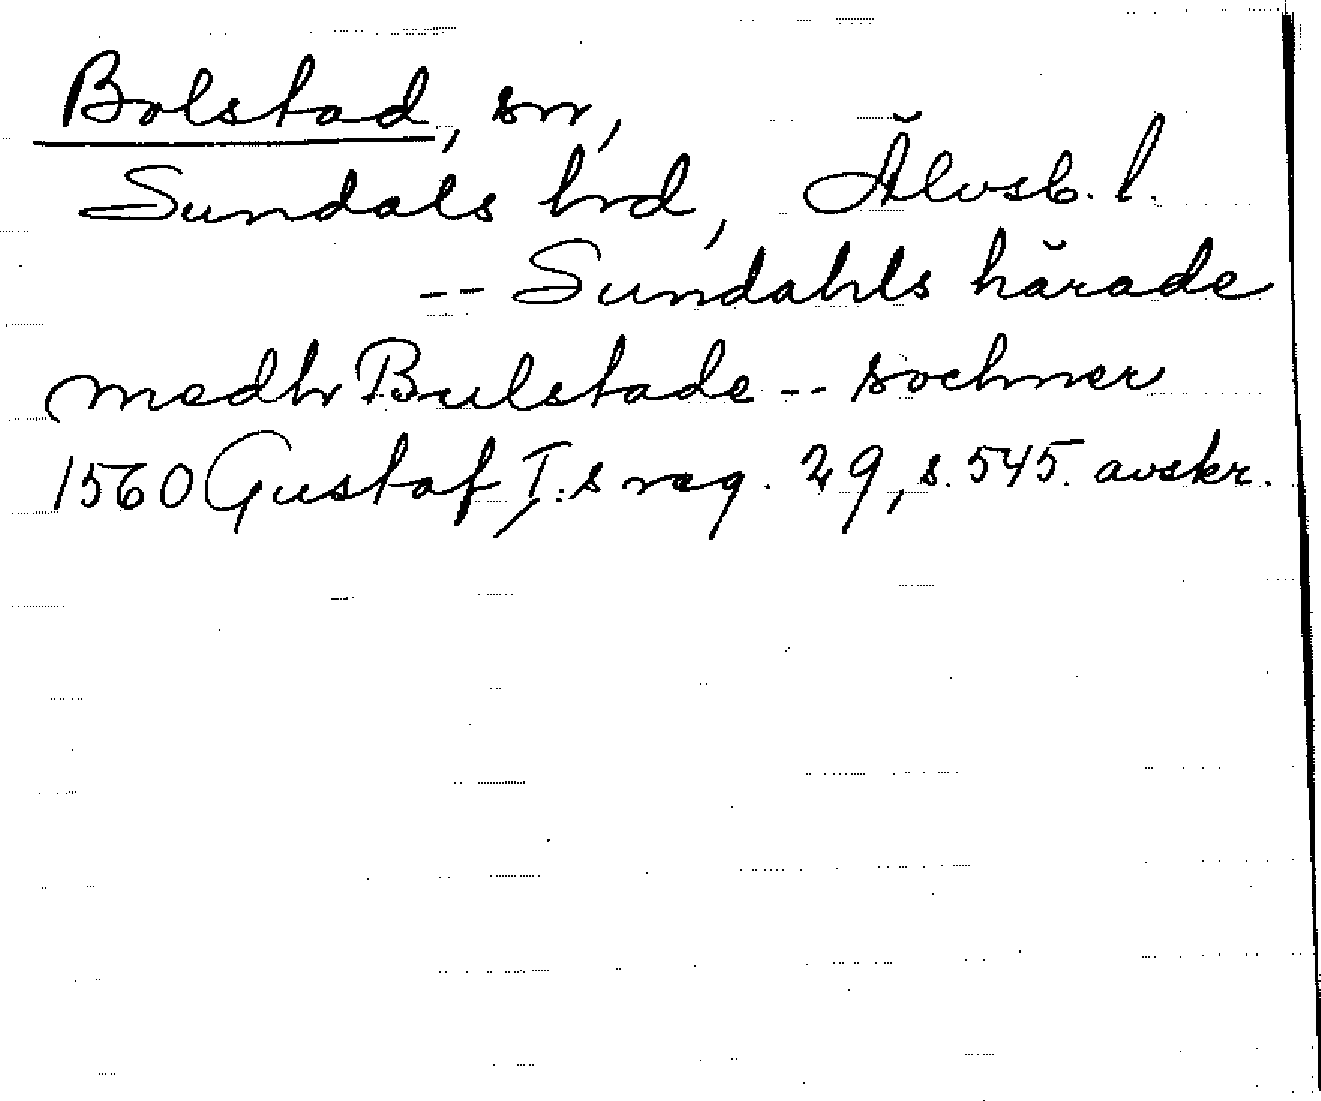 Bolstad, sn,
Sundals hrd, Älvsb. l.
-- Sundahls härade
medh Bulstade -- sochner
1560 Gustaf I:s reg. 29, s. 545. avskr.